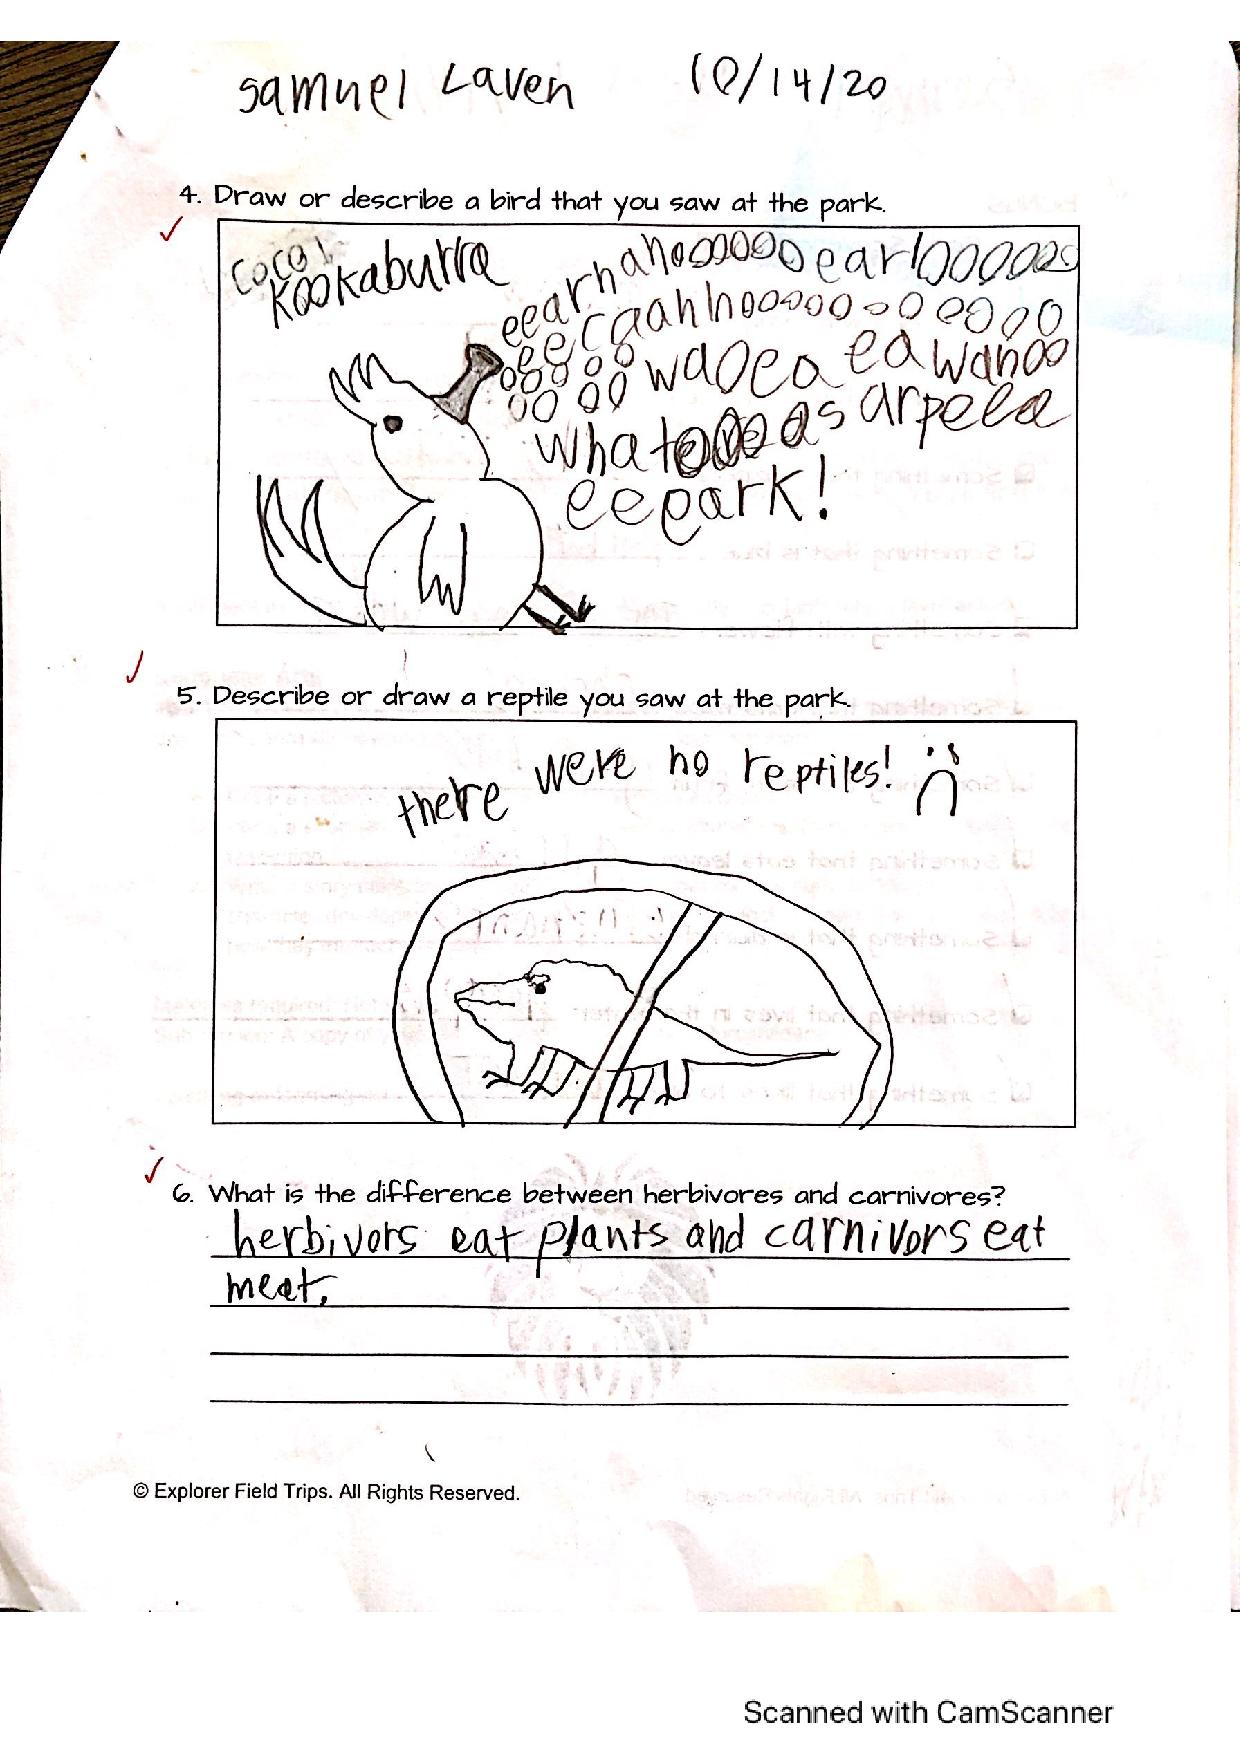 samuel Laven 10/14/20
4. Draw or describe a bird that you saw at the park.
coco!
kookaburra
eearhahooooooo earlooooooo
eecaahhooooo oo oooo
oooo waoea eawahoo
oooo
whatoooo as arpela
eeeark!
5. Describe or draw a reptile you saw at the park.
there were no reptiles! :(
6. What is the difference between herbivores and carnivores?
herbivors eat plants and carnivors eat
meat.
© Explorer Field Trips. All Rights Reserved.
Scanned with CamScanner